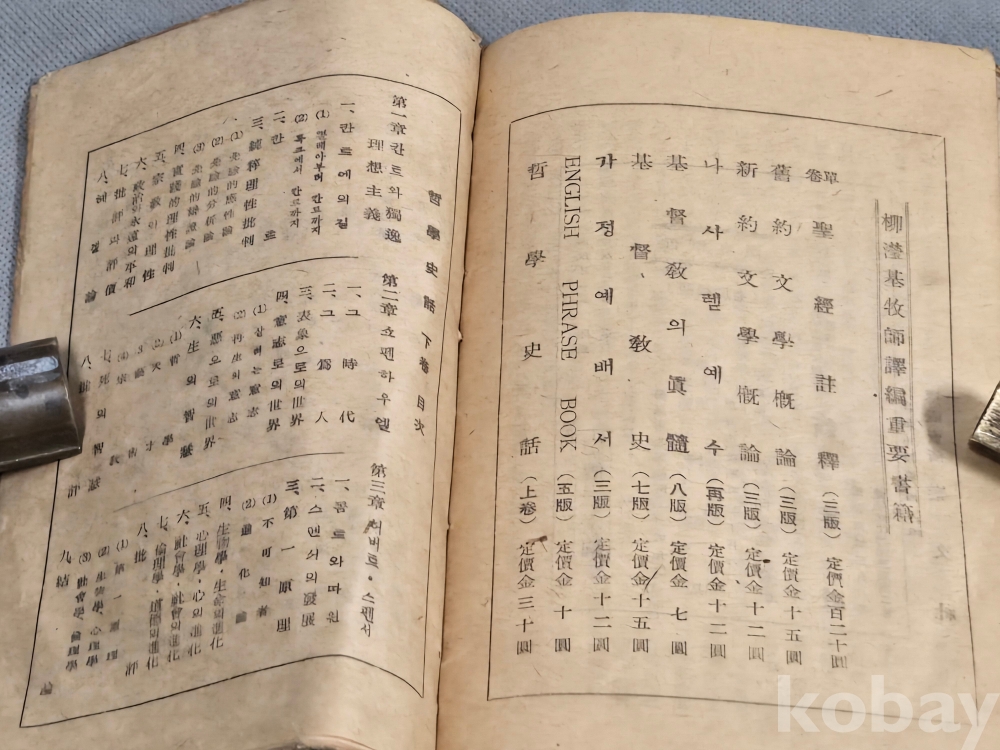 柳瀅基牧師譯編重要書籍
單卷 聖經註釋 (三版) 定價金百二十圓
舊約文學槪論 (三版) 定價金十五圓
新約文學槪論 (三版) 定價金十二圓
나사렛예수 (再版) 定價金十二圓
基督敎의眞髓 (八版) 定價金七圓
基督敎史 (七版) 定價金十五圓
가정예배서 (三版) 定價金十二圓
ENGLISH PHRASE BOOK (五版) 定價金十圓
哲學史話 (上卷) 定價金三十圓
哲學史話下卷目次
第一章 칸트와獨逸
理想主義
一、칸트에의길
(2) 루소에서 칸트까지
二、칸 트
三、純粹理性批判
(1) 先驗的感性論
(2) 先驗的分析論
(3) 先驗的辯證論
四、實踐的理性批判
五、宗敎와理性
六、政治와永遠의平和
七、批評과評價
八、헤겔 論
第二章 쇼펜하우엘
一、그時代
二、그爲人
三、表象으로의世界
四、意志로의世界
(2) 再生의意志
五、惡으로의世界
六、生의智慧
(1) 哲學
(2) 天才
(3) 藝術
(4) 宗敎
七、死의智慧
八、批評
第三章 허버트・스펜서
一、콤트와따윈
二、스펜서의發展
三、第一原理
(1) 不可知者
(2) 進化論
四、生物學・生命의進化
五、心理學・心의進化
六、社會學・社會의進化
七、倫理學・道德의進化
八、批評
(1) 第一原理
(2) 生物學、心理學
(3) 社會學、倫理學
九、結論
kobay